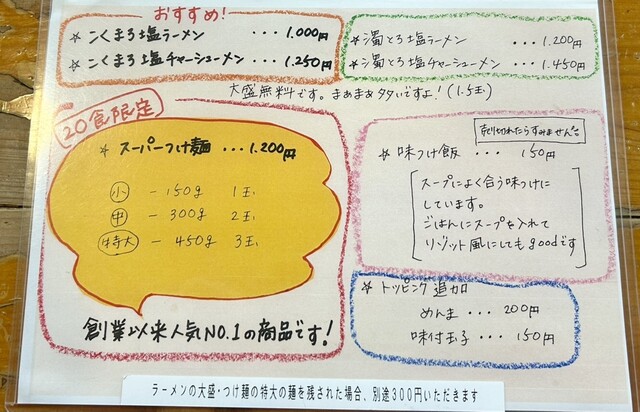 おすすめ!
☆ こくまろ塩ラーメン ・・・ 1.000円
☆ こくまろ塩チャーシューメン ・・ 1.250円
☆ 濁とろ塩ラーメン ・・・ 1.200円
☆ 濁とろ塩チャーシューメン ・・・ 1.450円
大盛無料です。まぁまぁ多いですよ!(1.5玉)
20食限定
☆ スーパーつけ麺 ・・・ 1.200円
小 - 150g 1玉
中 - 300g 2玉
特大 - 450g 3玉
創業以来人気NO.1の商品です!
売り切れたらすみません
☆ 味つけ飯 ・・・ 150円
スープによく合う味つけに
しています。
ごはんにスープを入れて
リゾット風にしてもgoodです
☆ トッピング追加
めんま ・・・ 200円
味付玉子 ・・・ 150円
ラーメンの大盛・つけ麺の特大の麺を残された場合、別途300円いただきます